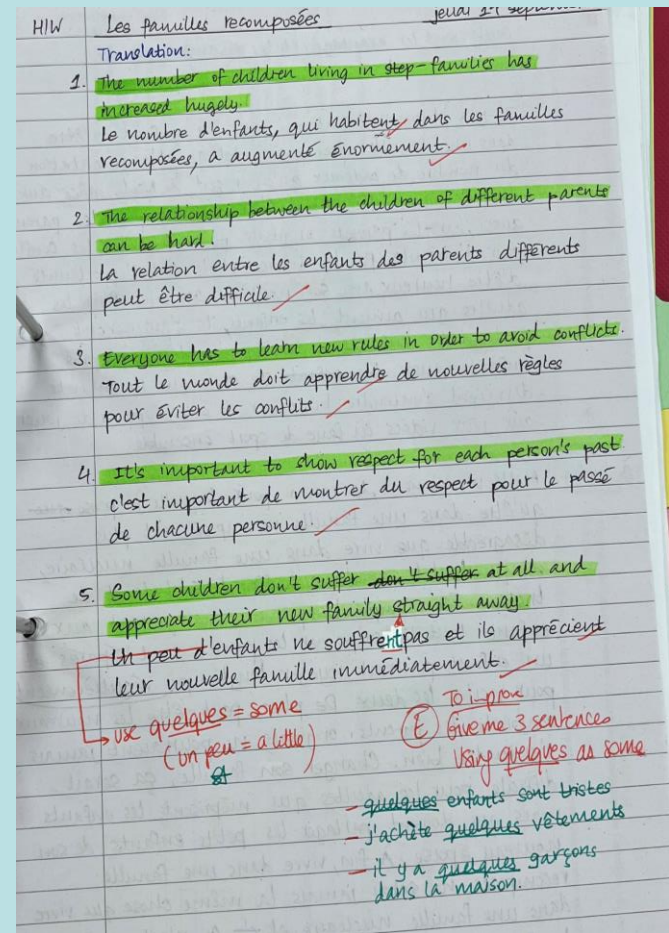 H/W Les familles recomposées jeudi
Translation:
1. The number of children living in step-families has
increased hugely.
Le nombre d'enfants, qui habitent, dans les familles
recomposées, a augmenté énormément.
2. The relationship between the children of different parents
can be hard.
La relation entre les enfants des parents différents
peut être difficile.
3. Everyone has to learn new rules in order to avoid conflicts.
Tout le monde doit apprendre de nouvelles règles
pour éviter les conflits.
4. It's important to show respect for each person's past
c'est important de montrer du respect pour le passé
de chacune personne.
5. Some children don't suffer don't suffer at all and
appreciate their new family straight away.
Un peu d'enfants ne souffrent pas et ils apprécient
leur nouvelle famille immédiatement.
use quelques = some
(un peu = a little)
To improve
E Give me 3 sentences
Using quelques as some
- quelques enfants sont tristes
- j'achète quelques vêtements
- il y a quelques garçons
dans la maison.